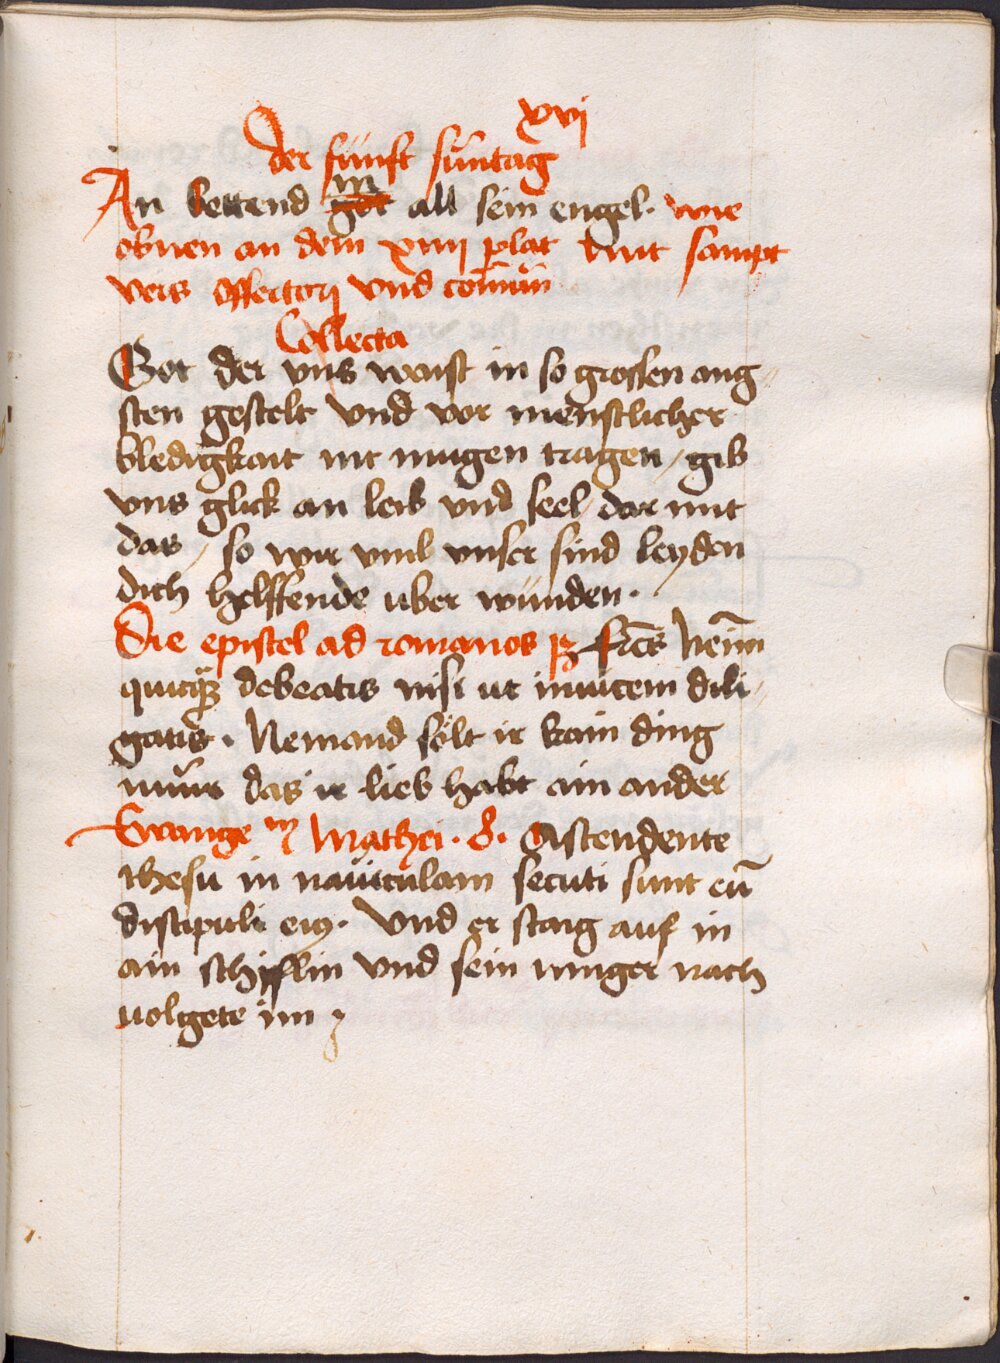 xvi
Der fünft suntag
An bettend in got all sein engel. wie
obnen an dem xiiii plat mit sampt
vers offertorj vnd comun
Collecta
Got der vns waist in so grossen ang
sten gestelt vnd vor menschlicher
bledigkait nit mugen tragen / gib
vns glick an leib vnd seel / dar mit
das / so wir vmb vnser sind leyden
dich helffende uber wünden .
Die epistel ad romanos 13 Frēs Nemini
quicqz debeatis nisi ut inuicem dili
gatis . Nemand sölt ir kain ding
nuur das ir lieb habt ain ander
Ewange m Mathei . 8 . Ascendente
ihesu in nauiculam secuti sunt eū
discipuli eiꝯ . Vnd er staig auf in
ain schifflin vnd sein iunger nach
uolgete im